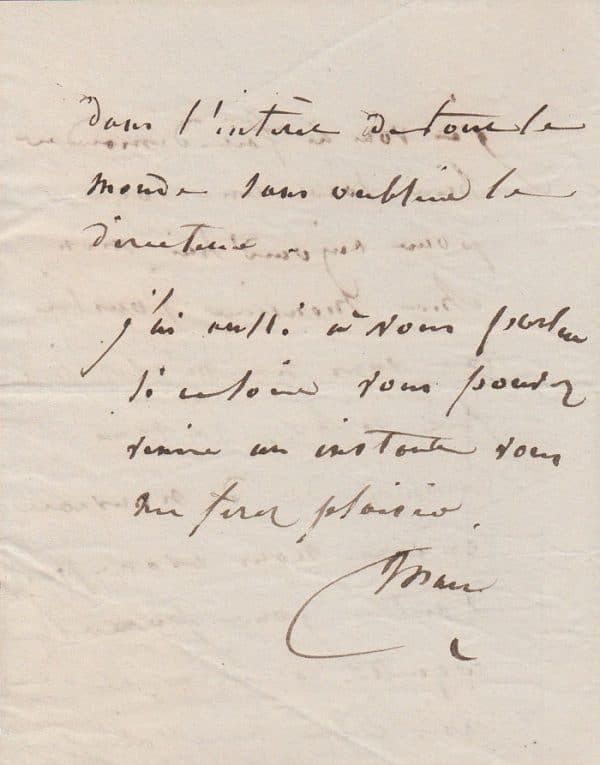 dans l'intérêt de tout le
monde sans oublier le
directeur.
j'ai aussi à vous parler
si ce soir vous pouvez
venir un instant vous
me ferez plaisir.
Mars